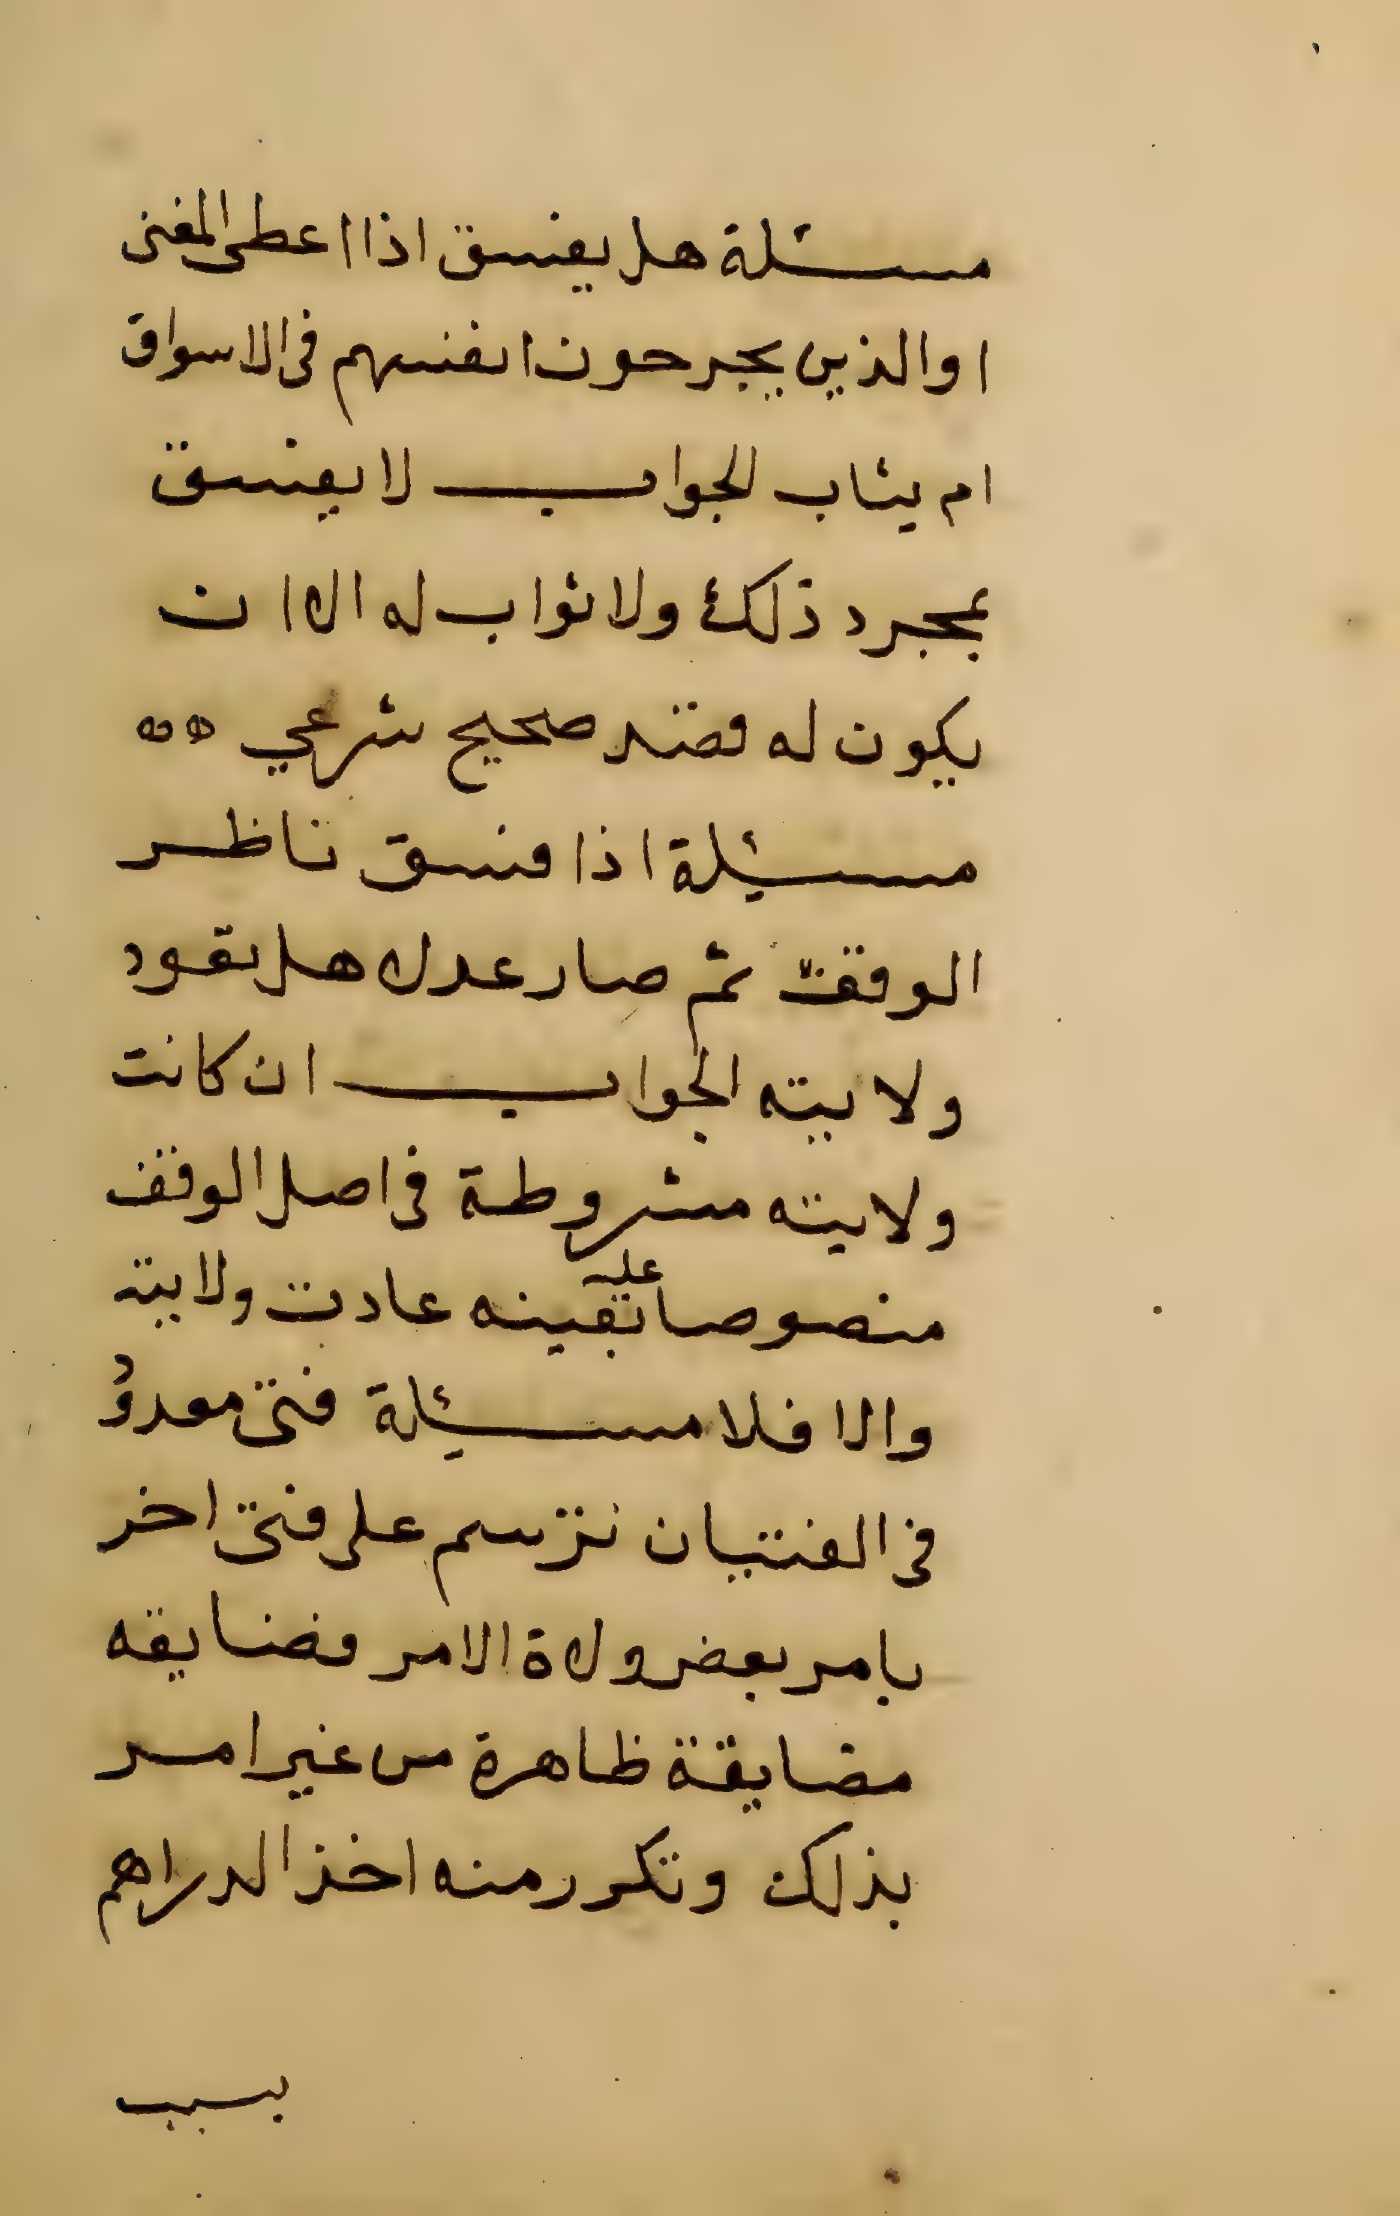 مسئلة هل يفسق اذا اعطى المغنى
او الذين يجرحون انفسهم فى الاسواق
ام يثاب الجواب لا يفسق
بمجرد ذلك ولا ثواب له الا ان
يكون له قصد صحيح شرعي ه ه
مسئلة اذا فسق ناظر
الوقف ثم صار عدلا هل تعود
ولايته الجواب ان كانت
ولايته مشروطة فى اصل الوقف
منصوصا عليه بعينه عادت ولايته
والا فلا مسئلة فتى معدود
فى الفتيان ترسم على فتى اخر
بامر بعض ولاة الامر فضايقه
مضايقة ظاهرة من غير امر
بذلك وتكرر منه اخذ الدراهم
بسبب